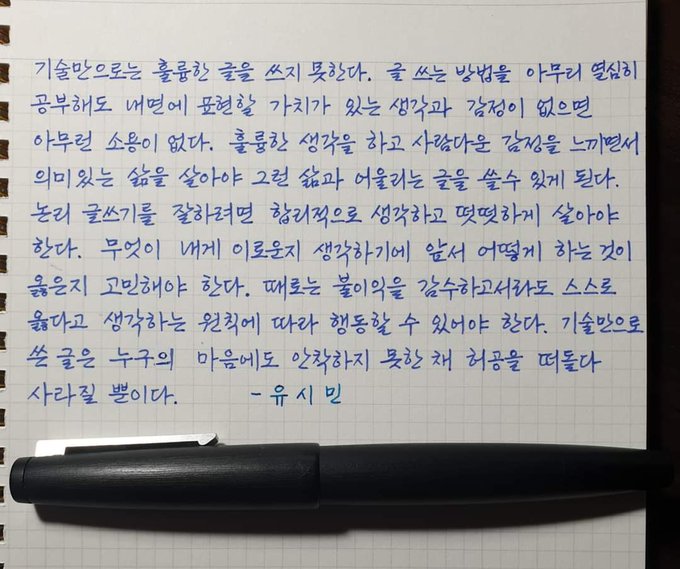 기술만으로는 훌륭한 글을 쓰지 못한다. 글 쓰는 방법을 아무리 열심히
공부해도 내면에 표현할 가치가 있는 생각과 감정이 없으면
아무런 소용이 없다. 훌륭한 생각을 하고 사람다운 감정을 느끼면서
의미있는 삶을 살아야 그런 삶과 어울리는 글을 쓸수 있게 된다.
논리 글쓰기를 잘하려면 합리적으로 생각하고 떳떳하게 살아야
한다. 무엇이 내게 이로운지 생각하기에 앞서 어떻게 하는것이
옳은지 고민해야 한다. 때로는 불이익을 감수하고서라도 스스로
옳다고 생각하는 원칙에 따라 행동할 수 있어야 한다. 기술만으로
쓴 글은 누구의 마음에도 안착하지 못한 채 허공을 떠돌다
사라질 뿐이다. - 유시민